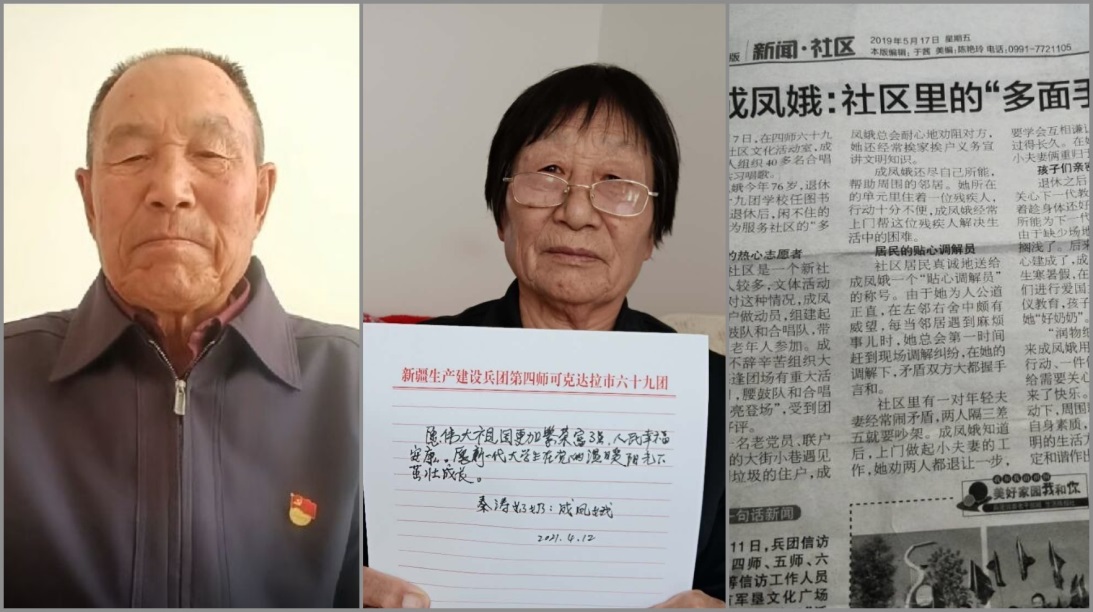 新疆生产建设兵团第四师可克达拉市六十九团
愿伟大祖国更加繁荣富强,人民幸福
安康。愿新一代大学生在党的温暖阳光下
茁壮成长。
秦涛奶奶:成凤娥
2021.4.12
版 新闻·社区
2019年5月17日 星期五
本版编辑:于茜 美编:陈艳玲 电话:0991-7721105
成凤娥:社区里的“多面手
7日,在四师六十九
社区文化活动室,成
人组织40多名合唱
练习唱歌。
娥今年76岁,退休
九团学校任图书
退休后,闲不住的
为服务社区的“多
的热心志愿者
社区是一个新社
人较多,文体活动
对这种情况,成凤
户做动员,组建起
鼓队和合唱队,带
老年人参加。成
不辞辛苦组织大
逢团场有重大活
,腰鼓队和合唱
亮登场”,受到团
好评。
名老党员,联户
的大街小巷遇见
垃圾的住户,成
凤娥总会耐心地劝阻对方,
她还经常挨家挨户义务宣
讲文明知识。
成凤娥还尽自己所能,
帮助周围的邻居。她所在
的单元里住着一位残疾人,
行动十分不便,成凤娥经常
上门帮这位残疾人解决生
活中的困难。
居民的贴心调解员
社区居民真诚地送给
成凤娥一个“贴心调解员”
的称号。由于她为人公道
正直,在左邻右舍中颇有
威望,每当邻居遇到麻烦
事儿时,她总会第一时间
赶到现场调解纠纷,在她的
调解下,矛盾双方大都握手
言和。
社区里有一对年轻夫
妻经常闹矛盾,两人隔三差
五就要吵架。成凤娥知道
后,上门做起小夫妻的工
作,她劝两人都退让一步,
要学会互相谦让
过得长久。在她
小夫妻俩重归于
孩子们亲密
退休之后
关心下一代教
着趁身体还好
所能为下一代
由于缺少场地
搁浅了。后来
心建成了,成
生寒暑假,在
们进行爱国
仪教育,孩子
她“好奶奶”。
“润物细
来成凤娥用
行动、一件件
给需要关心
来了快乐。
动下,周围
自身素质,
明的生活方
定和谐作出
美好家园我和你
一句话新闻
11日,兵团信访
四师、五师、六
等信访工作人员
军垦文化广场